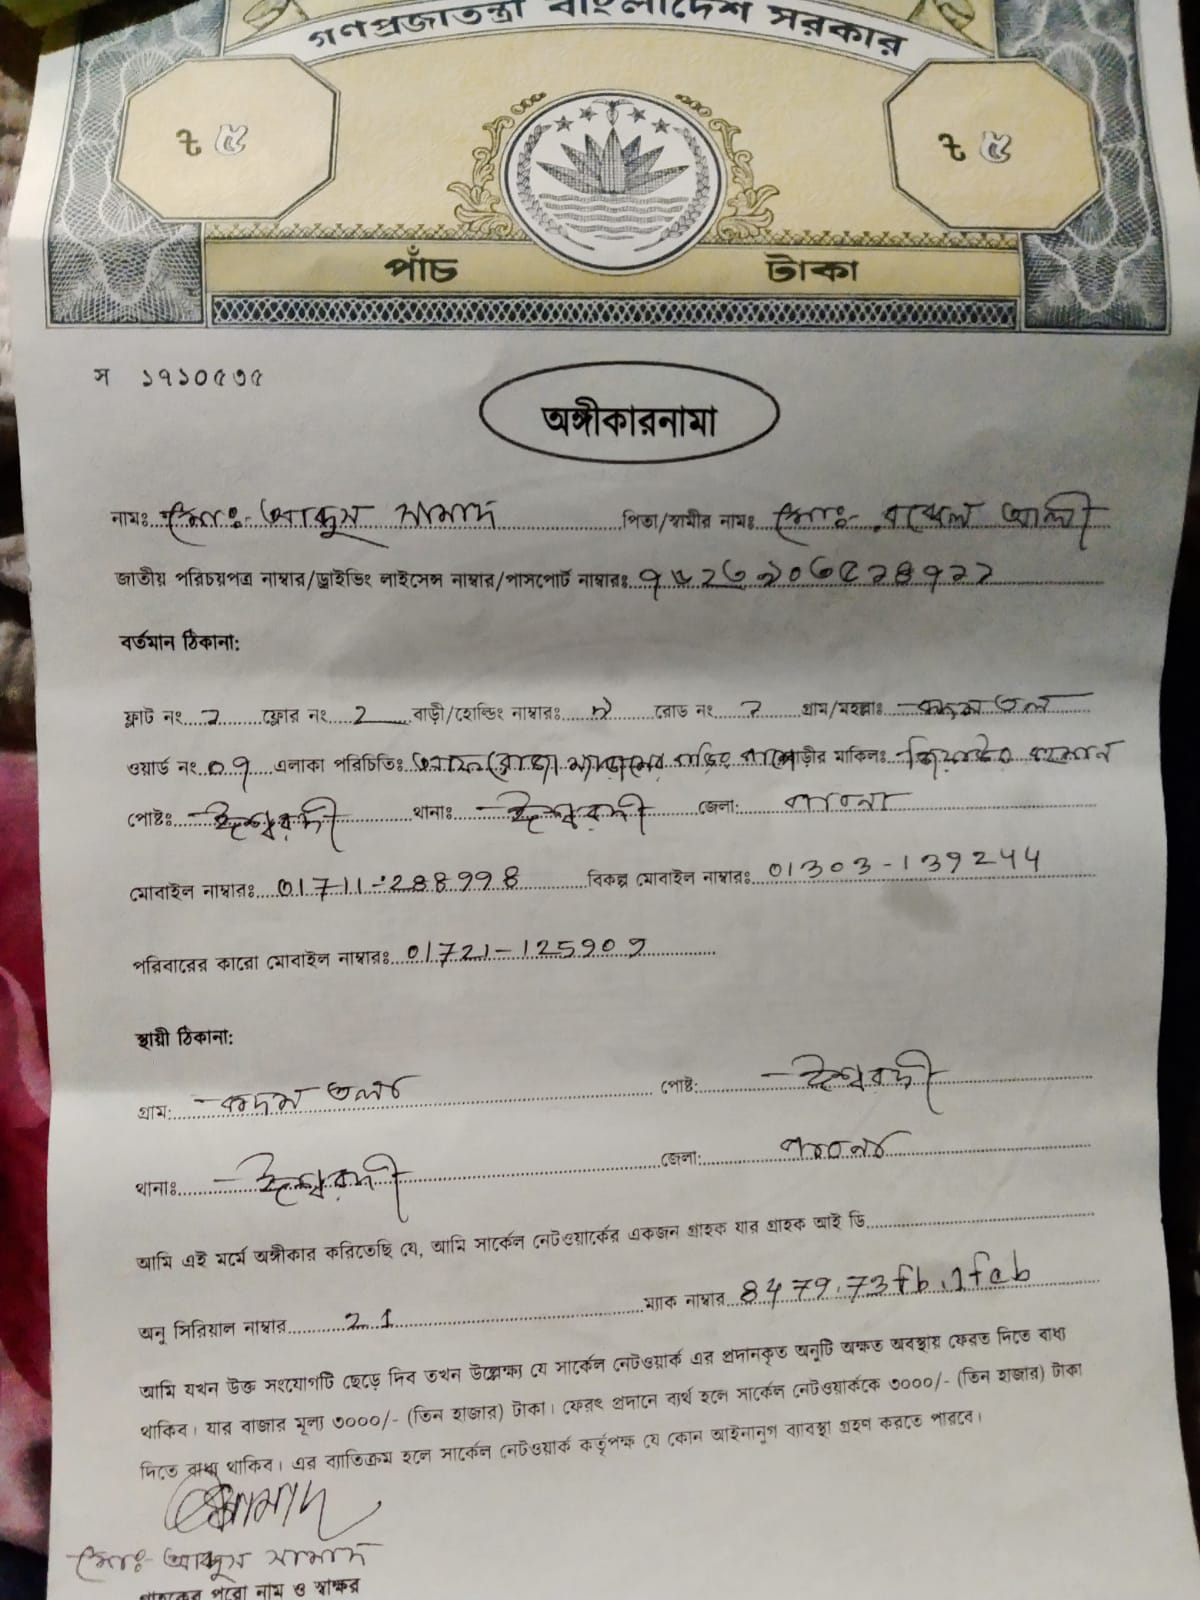 গণপ্রজাতন্ত্রী বাংলাদেশ সরকার
৳ ৫ ৳ ৫
পাঁচ টাকা
স ১৭১০৫৩৫
অঙ্গীকারনামা
নামঃ মোঃ- আব্দুস সামাদ পিতা/স্বামীর নামঃ মোঃ- আলী
জাতীয় পরিচয়পত্র নাম্বার/ড্রাইভিং লাইসেন্স নাম্বার/পাসপোর্ট নাম্বারঃ
বর্তমান ঠিকানা:
ফ্লাট নং ফ্লোর নং বাড়ী/হোল্ডিং নাম্বারঃ রোড নং গ্রাম/মহল্লাঃ কদম তলা
ওয়ার্ড নং ০৭ এলাকা পরিচিতিঃ বাড়ীর মালিকঃ রহমান
পোষ্টঃ ঈশ্বরদী থানাঃ ঈশ্বরদী জেলা: পাবনা
মোবাইল নাম্বারঃ 01711-288998 বিকল্প মোবাইল নাম্বারঃ 01303-139244
পরিবারের কারো মোবাইল নাম্বারঃ 01721-125909
স্থায়ী ঠিকানা:
গ্রাম: কদম তলা পোষ্ট: ঈশ্বরদী
থানাঃ ঈশ্বরদী জেলা: পাবনা
আমি এই মর্মে অঙ্গীকার করিতেছি যে, আমি সার্কেল নেটওয়ার্কের একজন গ্রাহক যার গ্রাহক আই ডি
অনু সিরিয়াল নাম্বার 21 ম্যাক নাম্বার 8479.73fb.1fcb
আমি যখন উক্ত সংযোগটি ছেড়ে দিব তখন উল্লেক্ষ্য যে সার্কেল নেটওয়ার্ক এর প্রদানকৃত অনুটি অক্ষত অবস্থায় ফেরত দিতে বাধ্য
থাকিব। যার বাজার মূল্য ৩০০০/- (তিন হাজার) টাকা। ফেরৎ প্রদানে ব্যর্থ হলে সার্কেল নেটওয়ার্ককে ৩০০০/- (তিন হাজার) টাকা
দিতে বাধ্য থাকিব। এর ব্যাতিক্রম হলে সার্কেল নেটওয়ার্ক কর্তৃপক্ষ যে কোন আইনানুগ ব্যাবস্থা গ্রহণ করতে পারবে।
সামাদ
মোঃ- আব্দুস সামাদ
গ্রাহকের পুরো নাম ও স্বাক্ষর